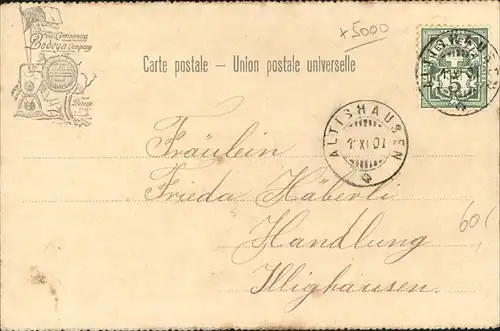 The Continental
Bodega Company
+5000
Carte postale – Union postale universelle
ALTISHAUSEN
1 XI 01
Fräulein
Frieda Häberli
Handlung
Illighausen.
60